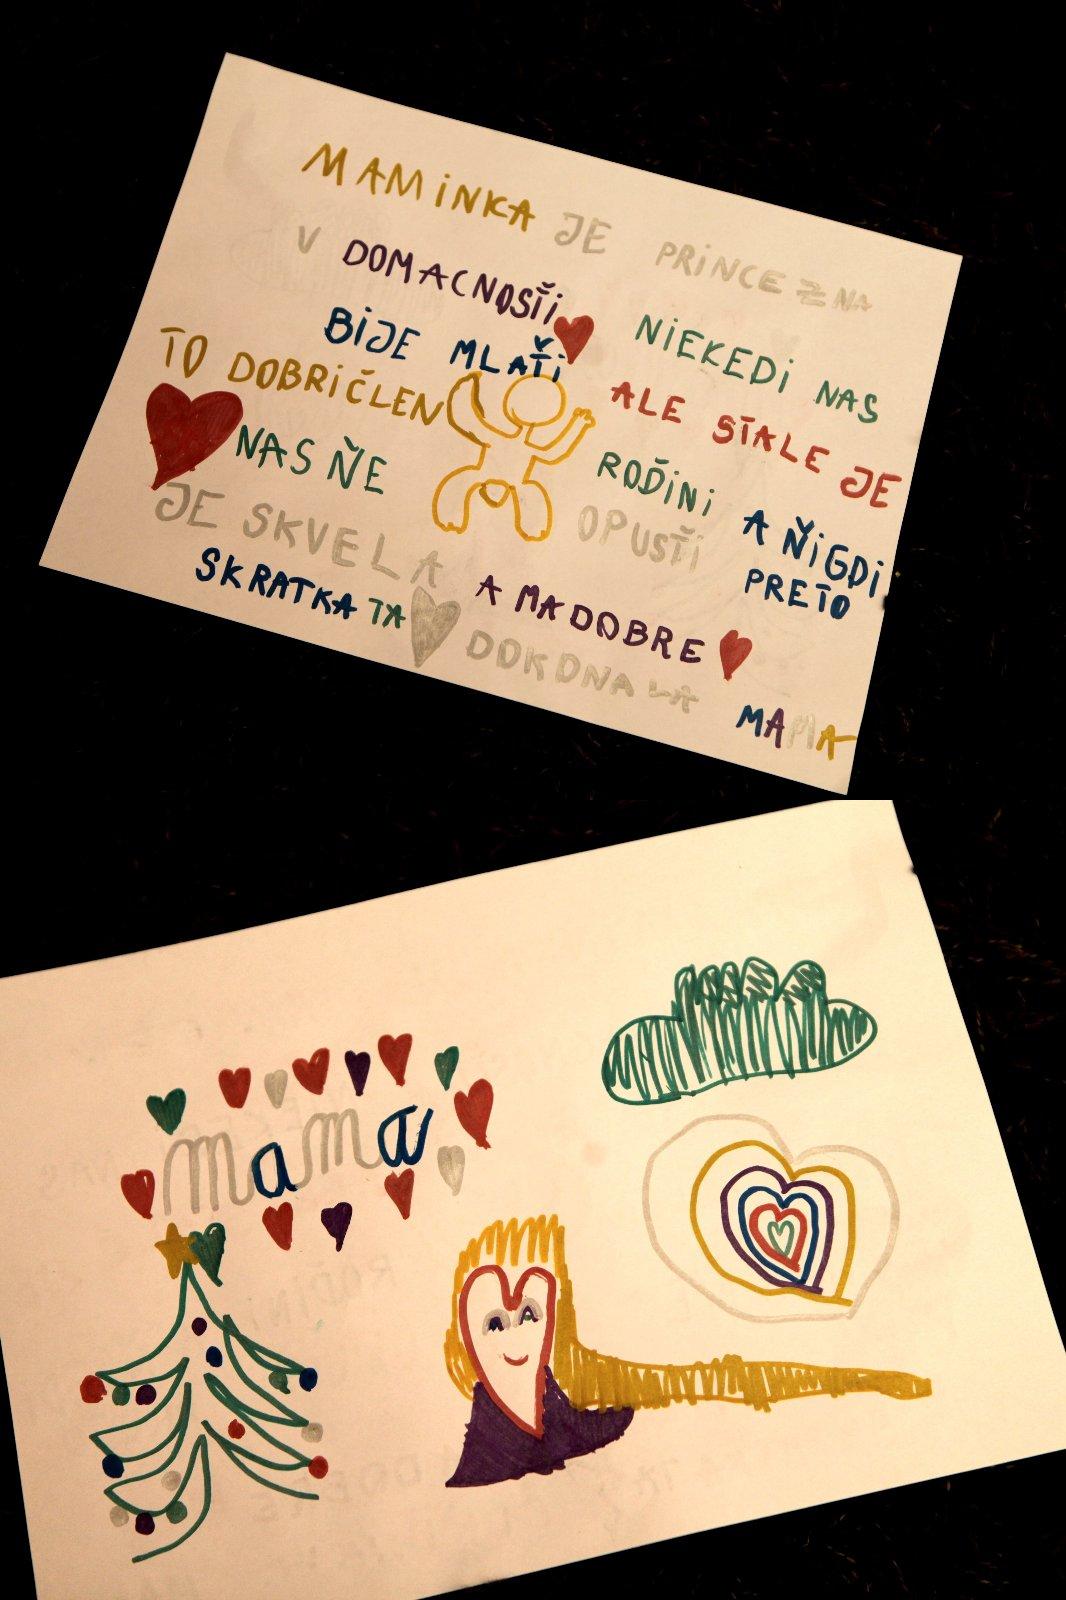 MAMiNKA JE PRiNCEZNA
V DOMACNOSŤi NiEKEDi NAS
BiJE MLAŤi ALE STALE JE
TO DOBRiČLEN RODiNi A ŇiGDi
NAS ŇE OPUSŤi PRETO
JE SKVELA A MADOBRE
SKRATKA TA DOKONALA
MAMA
mama